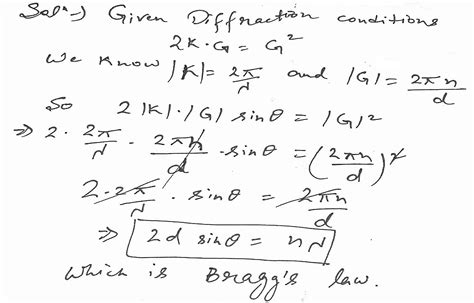 Sol⁻ⁿ⇒ Given Diffraction conditions
2K·G = G²
we know |K| = 2π/λ and |G| = 2πn/d
So 2|K|·|G| sinθ = |G|²
⇒ 2· 2π/λ · 2πn/d · sinθ = (2πn/d)²
2·2π/λ · sinθ = 2πn/d
⇒ 2d sinθ = nλ
which is Bragg's law.